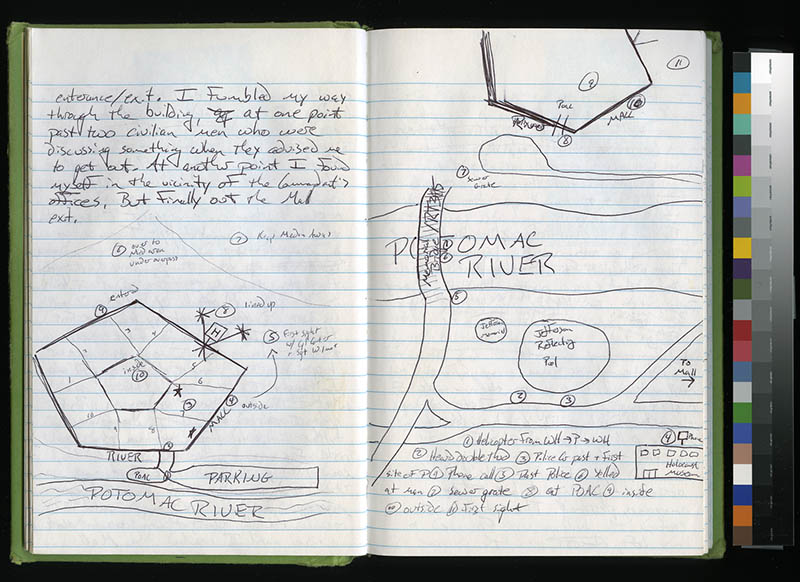 entrance/exit. I fumbled my way
through the building, at one point
past two civilian men who were
discussing something when they advised me
to get out. At another point I found
myself in the vicinity of the Commandant's
offices, But Finally out the Mall
exit.
6 over to
Median
underpass
7
9
8 lined up
H
5 First sight
3
4
2
5
1
inside
10
6
3
10
9
8
MALL 4
outside
RIVER
POAC
PARKING
POTOMAC RIVER
9
11
POAC
10
MALL
8
7 sewer
grate
POTOMAC
RIVER
5
Jefferson
Jefferson
Reflecting
Pool
To
Mall
2
3
4
Holocaust
Museum
1 Helicopter From WH → P → WH
2 Heard Double Thud 3 Police Car past + First
site of P 4 Phone call 5 Past Police 6 Yelled
at men 7 sewer grate 8 at POAC 9 inside
10 outside 11 First sight